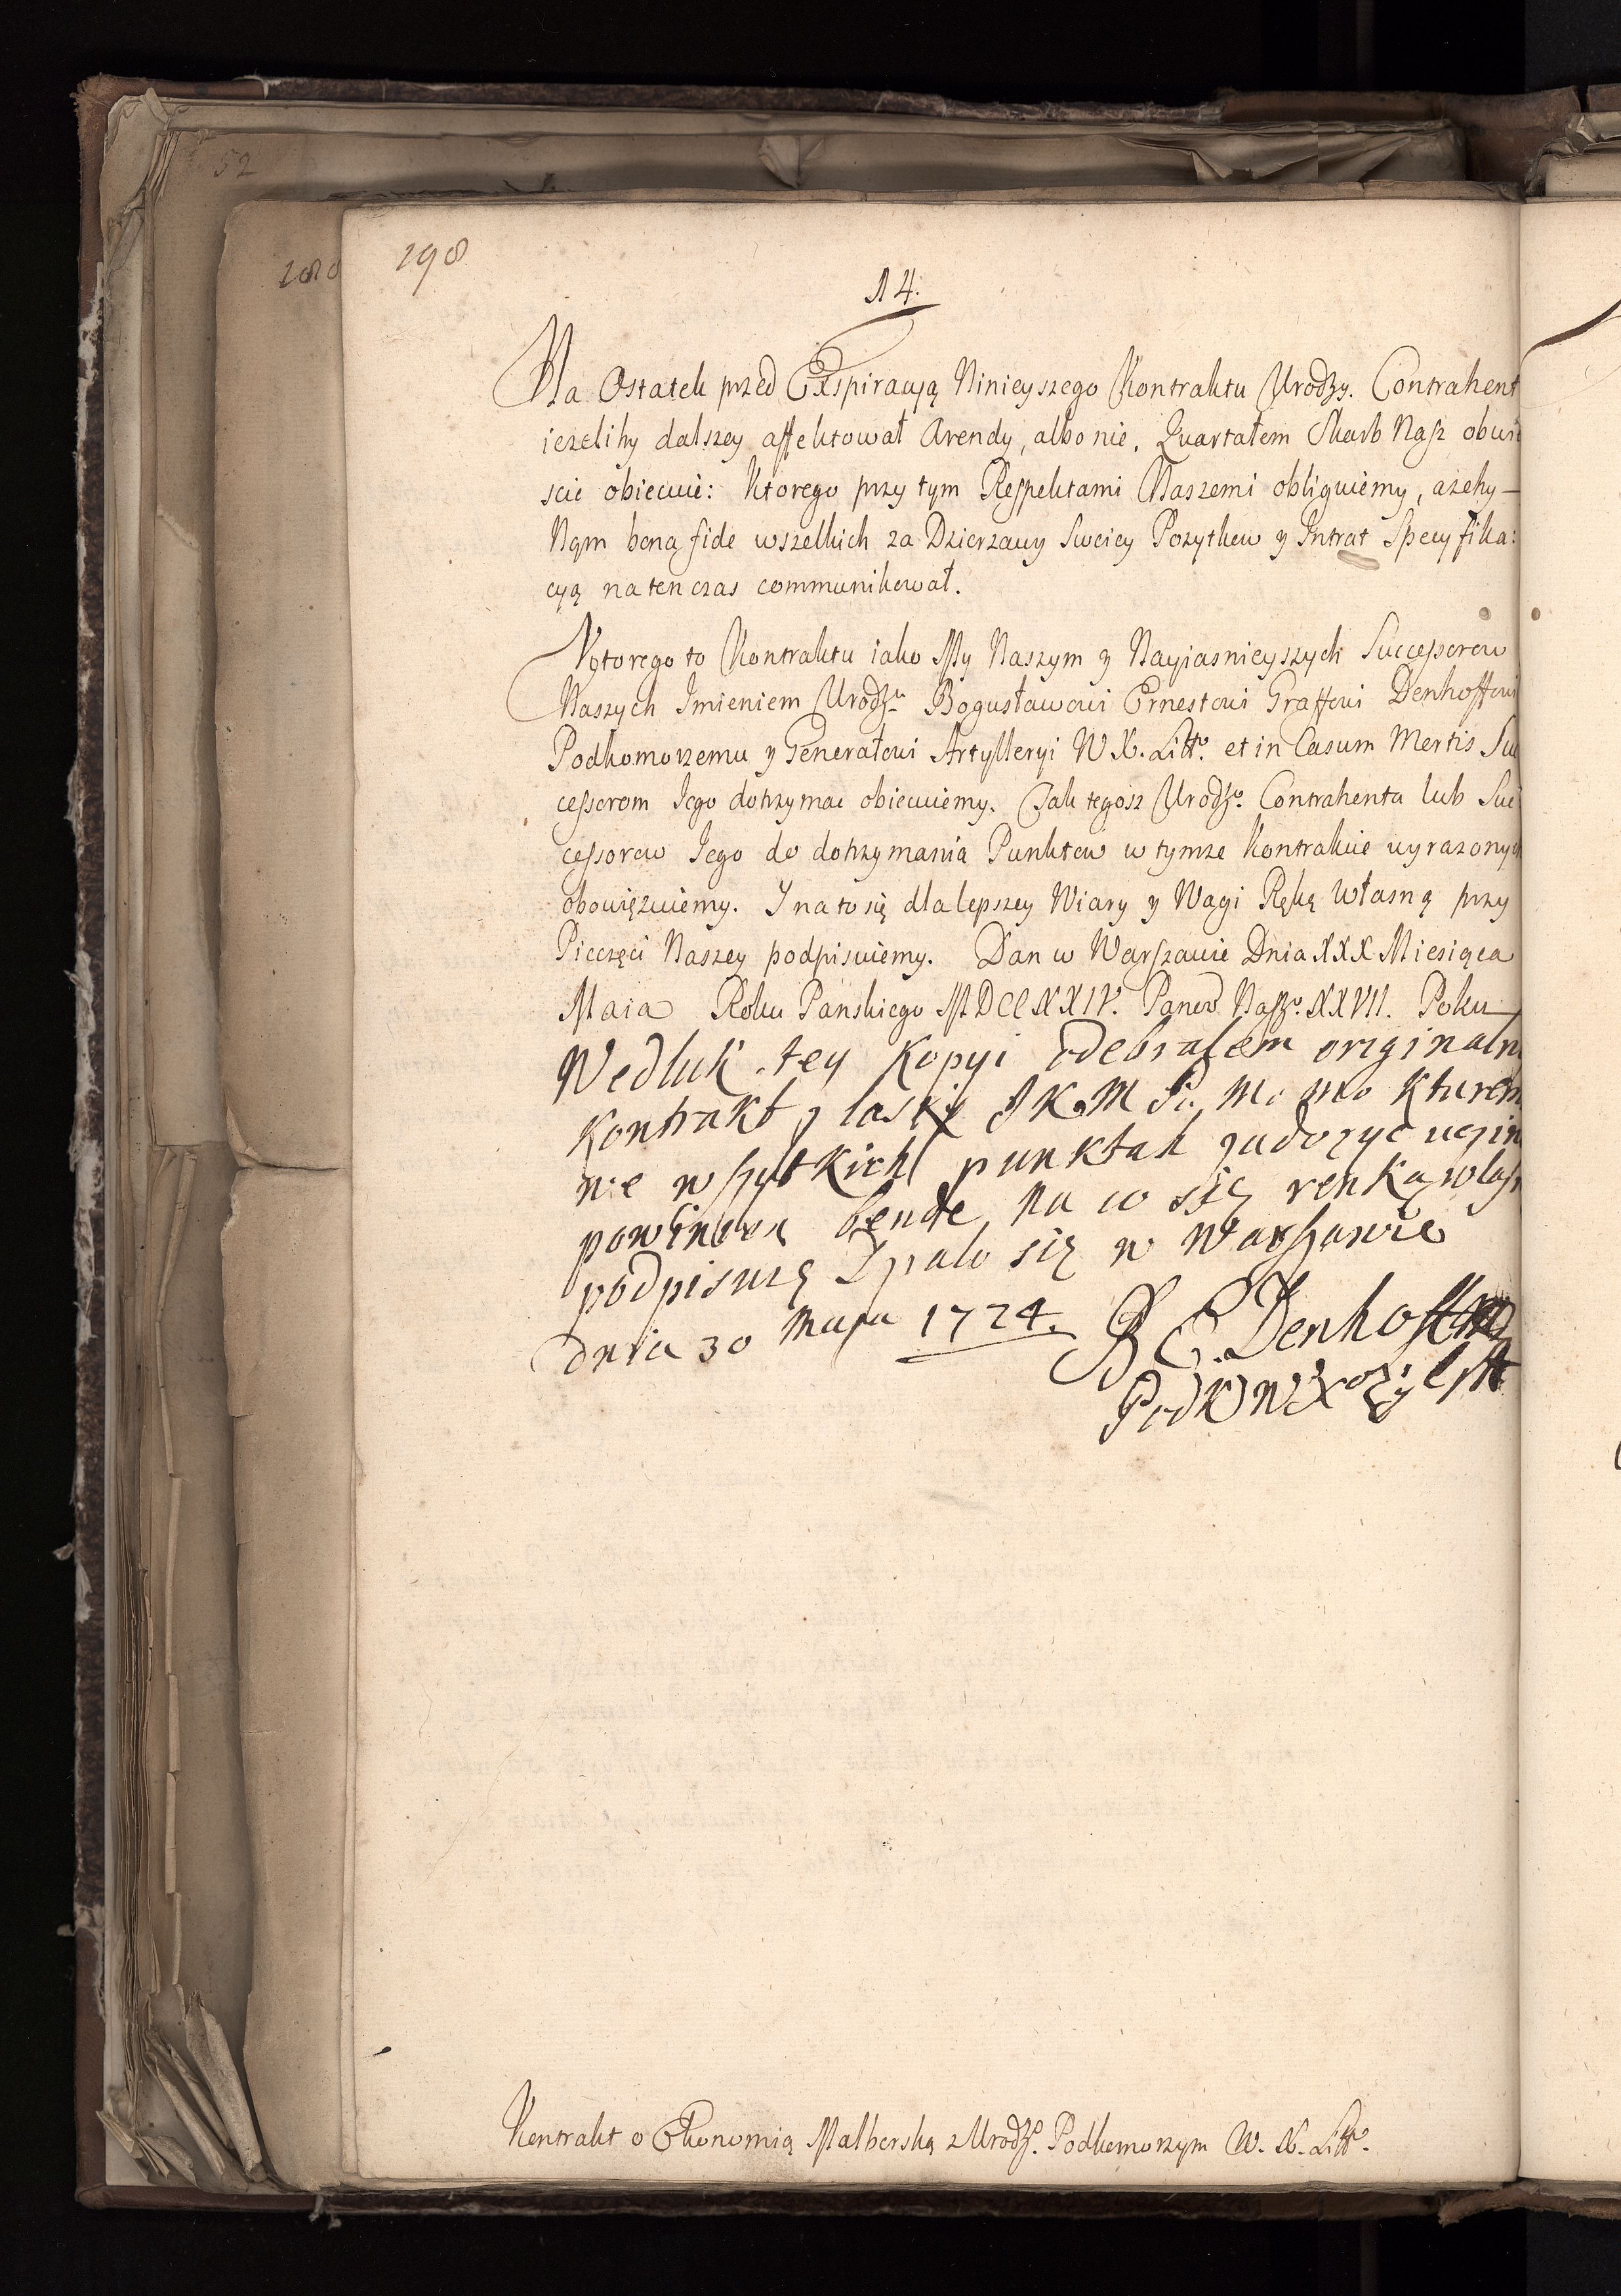 52
188
198
14.
Na Ostatek przed Exspiracyą Ninieyszego Kontraktu Urodzy. Contrahent
iezeliby dalszey affektował Arendy, albo nie, Quartałem Skarb Nasz obwie
scic obiecuie: Ktorego przy tym Respektami Naszemi obliguiemy, azeby
Nąm bona fide wszelkich za Dzierzawy Swoiey Pozytkow y Intrat Specyfika:
cyą na ten czas communikował.
Ktorego to Kontraktu iako My Naszym y Nayiasnieyszych Successorow
Naszych Imieniem Urodzu. Bogusławowi Ernestowi Graffowi Denhoffowi
Podkomorzemu y Generałowi Artylleryi W X. Litto. et in Casum Mortis Suc
cessorom Jego dotrzymac obiecuiemy. Jak tegosz Urodzo. Contrahenta lub Suc
cessorow Jego do dotrzymania Punktow w tymze Kontrakcie wyrazonych
obowięzuiemy. I na to się dla lepszey Wiary y Wagi Ręką Własną przy
Pieczęci Naszey podpisuiemy. Dan w Warszawie Dnia XXX Miesiąca
Maia Roku Panskiego MDCCXXIV. Panow Naszo. XXVII. Roku
Wedluk tey Kopyi odebrałem originaln
Kontrakt z laski J K M P. M. mo kturem
we wszytkich punktah zadozyc uczin
powinien bende, na co się renką wlasn
podpisuię Dzialo się w Warszawie
dnia 30 Maja 1724. B E. Denhoff
Kontrakt o Ekonomią Malborską z Urodzo. Podkomorzym W. X. Litto.